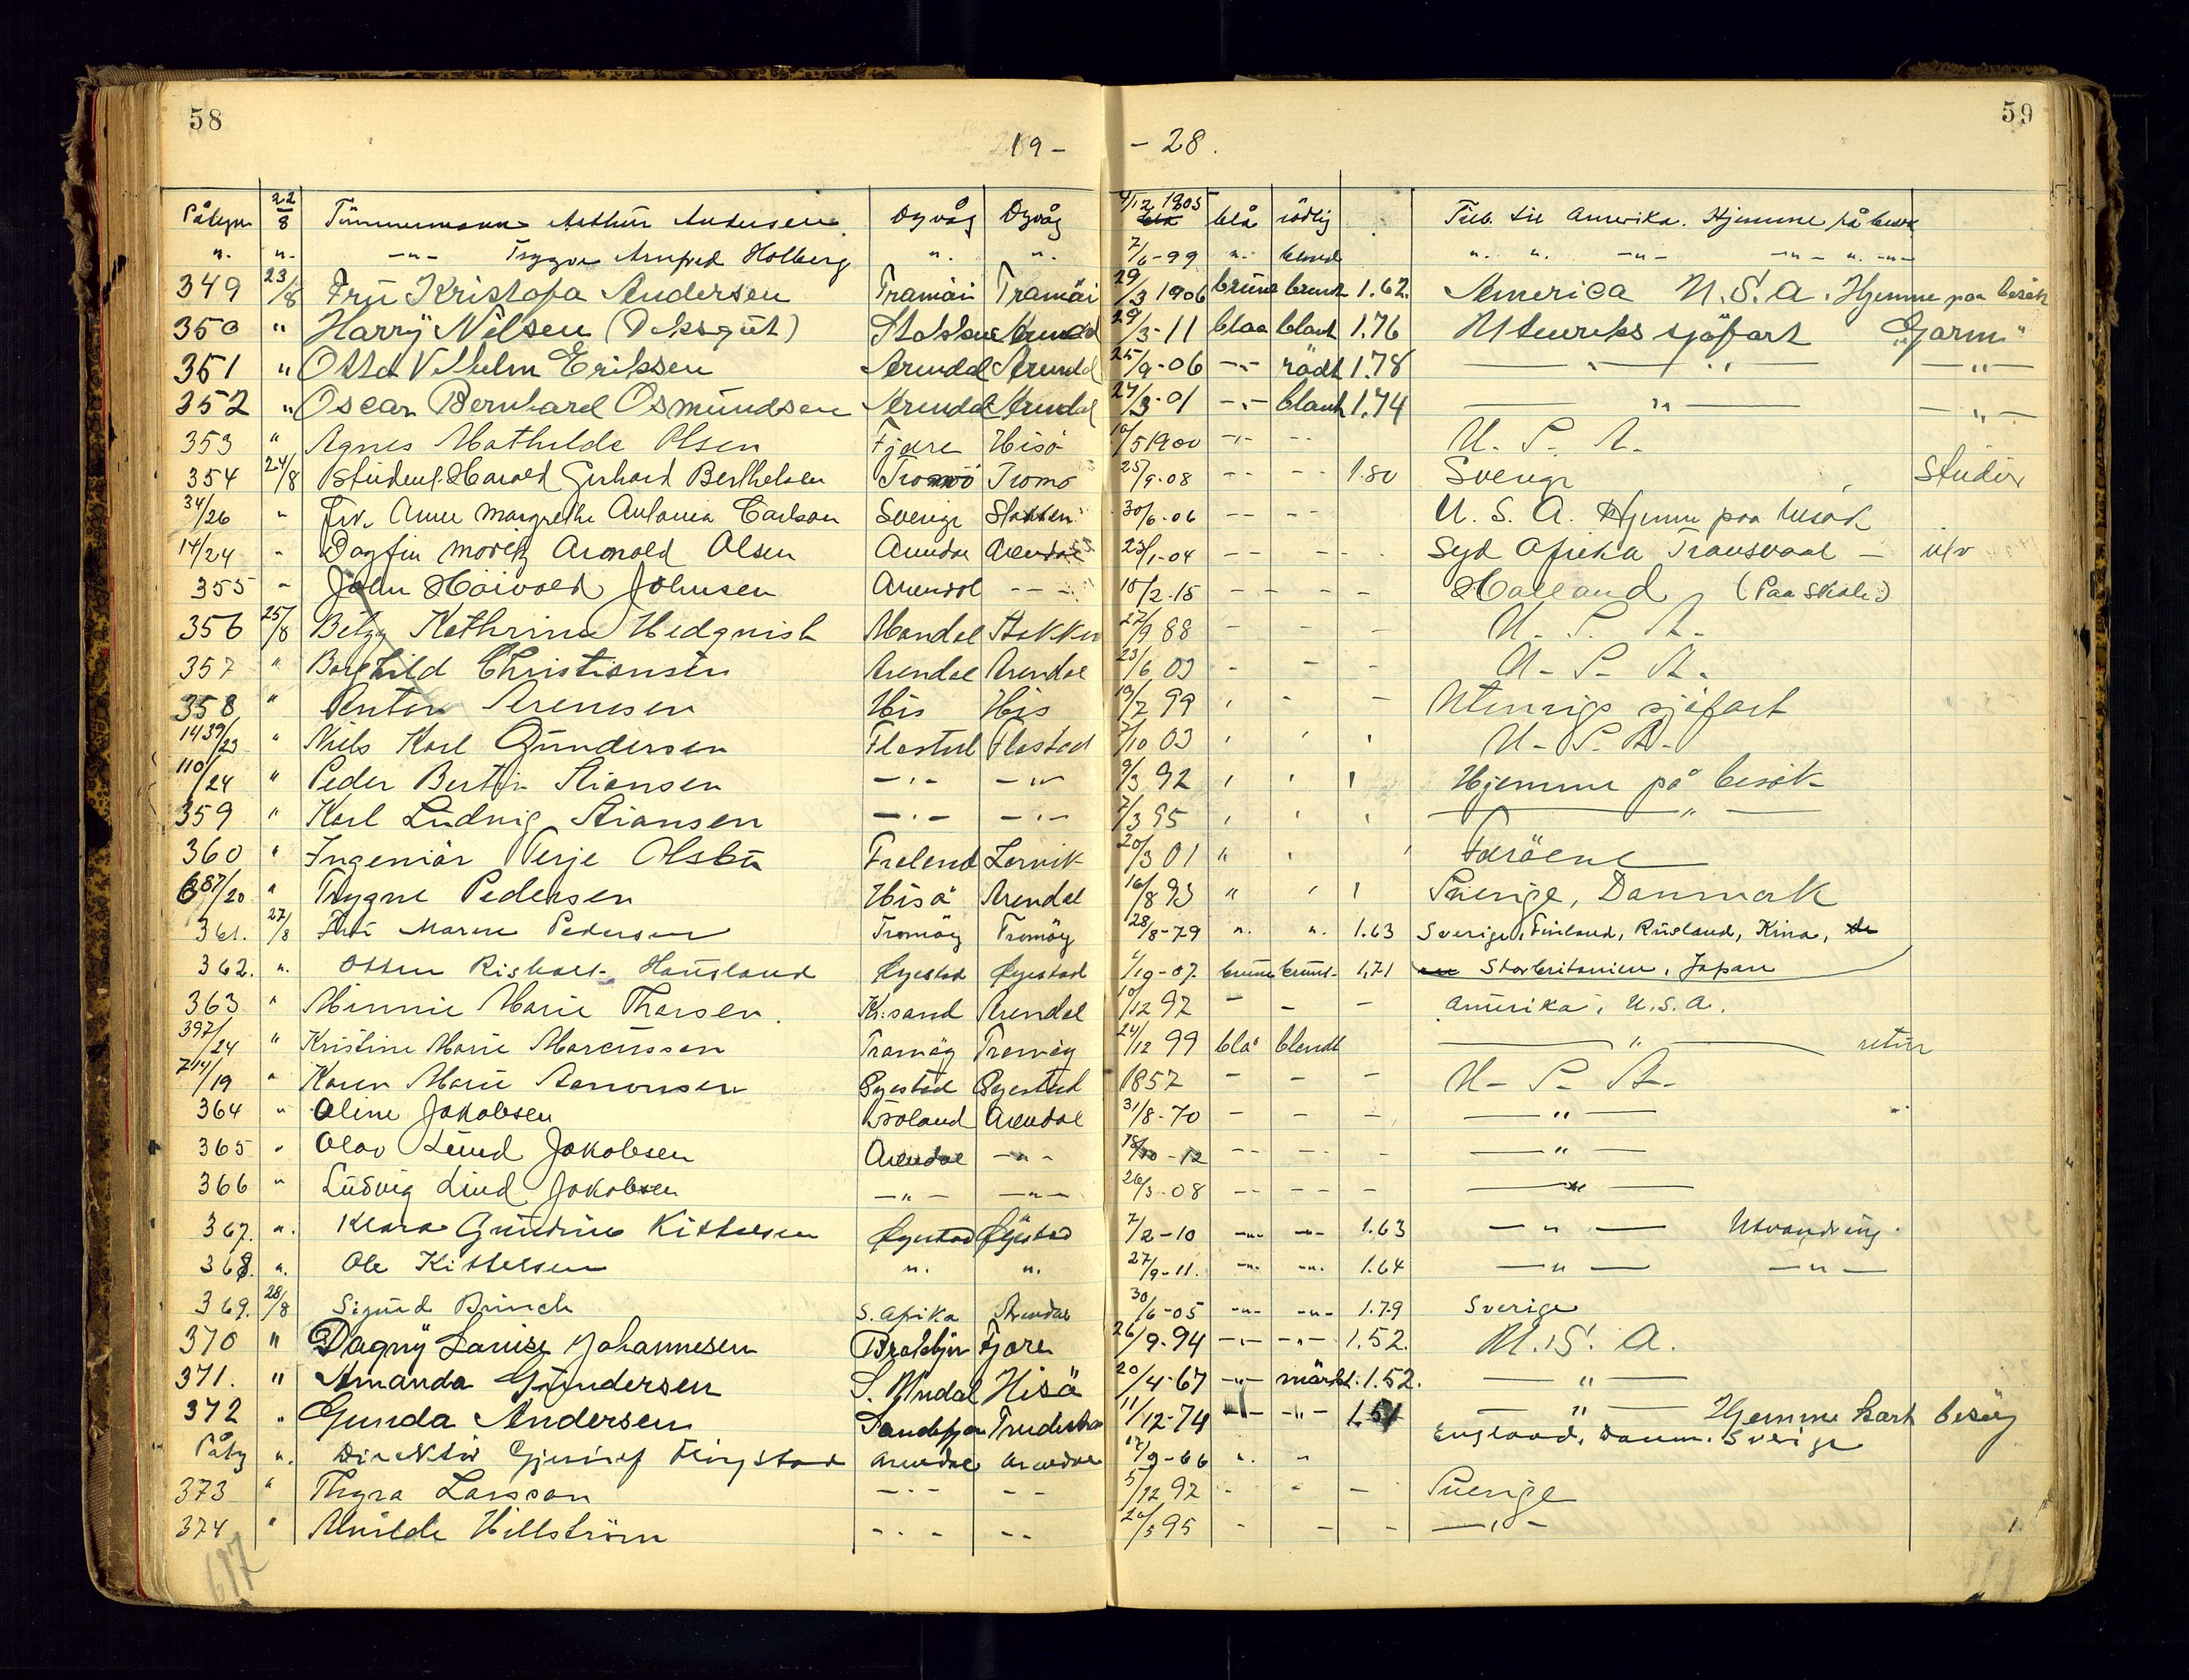 58
59
19- -28.
Påtegn 22/8 Tümmermann Arthur Andersen. Dyvåg Dyvåg 4/12 1905 blå rödlig Tilb. til Amerika. Hjemme på besøk
". ". -"- Trygve Arnfred Holberg ". ". 7/6-99 ". blond ". ". -"- -"- ". -"-
349 23/8 Frü Kristofa Andersen Tromöi Tromöi 29/3 1906 brüne brünt 1.62. America U.S.A. Hjemme paa besök
350 " Harry Nilsen (Deksgüt) Stokken Arendal 29/3-11 blaa blont 1.76 Utenriks sjöfart "Gorm"
351 " Otto Vilhelm Eriksen Arendal Arendal 25/9-06 -"- rödt 1.78 —"— —"—
352 " Oscar Bernhard Osmündsen Arendal Arendal 27/3-01 -"- blont 1.74 —"— —"—
353 " Agnes Mathilde Olsen Fjære Hisö 10/5 1900 -"- -- U. S. A.
354 24/8 Student Harald Gerhard Berthelsen Tromö Tromö 25/9-08 -- -- 1.80 Sverige Studier
34/26 " Frv. Anne Margrethe Antonia Carlson Sverige Stokken 30/6-06 -- -- U. S. A. Hjemme paa besök
14/24 " Dagfin Moritz Arnold Olsen Arendal Arendal 23/1-04 -- -- Syd Afrika Transvaal - u/v
355 " John Höivold Johnsen Arendal --- 15/2-15 - - - - Holland (Paa Skole)
356 25/8 Betzy Kathrine Hedqvish Mandal Stokken 27/9 88 - - - U. S. A.
357 " Borghild Christiansen Arendal Arendal 23/6 03 - - - U. S. A.
358 " Anton Arensen His His 19/7 99 " - - Utenrigs sjöfart
1439/23 " Niels Karl Gündersen Flostad Flostad 7/10 03 " " " U. S. A.
110/24 " Peder Bertin Stiansen -"- -"- 9/3 92 " " " Hjemme på besök
359 " Karl Lüdvig Stiansen -"- -"- 7/3 95 " " " —"—
360 " Ingeniör Terje Olsbü Froland Lervik 20/3 01 " " " Færöene
687/20 " Trygve Pedersen Hisö Arendal 16/8 93 " " " Sverige, Danmark
361. 27/8 Frü Maren Pedersen Tromöy Tromöy 28/8-79 ". ". 1.63 Sverige, Finland, Rüsland, Kina,
362. ". Otten Rishart Haüsland Øyestad Øyestad /10-07. brüne brünt- 1.71 Storbritanien, Japan
363 " Minnie Marie Thorsen. K.sand Arendal 10/12 97 - - - Amerika, U.S.A.
397/24 " Kristine Marie Marcüssen Tromöy Tromöy 24/12 99 blå blondt —"— retür
714/19 " Karen Marie Aanonsen Öyestad Öyestad 1857 - - - U. S. A.
364 " Oline Jakobsen Froland Arendal 31/8-70 - - - —"—
365 " Olav Lünd Jakobsen Arendal -"- 18/10-12 -- -- - —"—
366 " Lüdvig Lünd Jakobsen -"- -"- 26/3-08 -- -- - —"—
367. ". Klara Gündine Kittelsen Øyestad Øyestad 7/2-10 -"- -"- 1.63 —"— Utvandring.
368. ". Ole Kittelsen ". ". 27/9-11. -"- -"- 1.64 —"— —"—
369. 28/8 Sigürd Brünch S. Afrika Arendal 30/6-05 -"- -"- 1.79 Sverige
370 " Dagny Louise Johannesen Brooklyn Fjære 26/9-94 -"- -"- 1.52. U.S. A.
371. " Amanda Gündersen S. Undal Hisö 20/4-67 -"- mörkt. 1.52. —"—
372 " Gunda Andersen Sandefjor 11/12-74 -"- -"- 1.51 —"— Hjemme kort besög
Påtg ". Direktör Fingstad Arendal Arendal 17/9-66 ". " England, Danm. Sverige
373 " Thyra Larsson -"- -- 5/12 92 - " - Sverige
374 " Alvilde Hillström -"- -- 20/5 95 - - - —"—
617